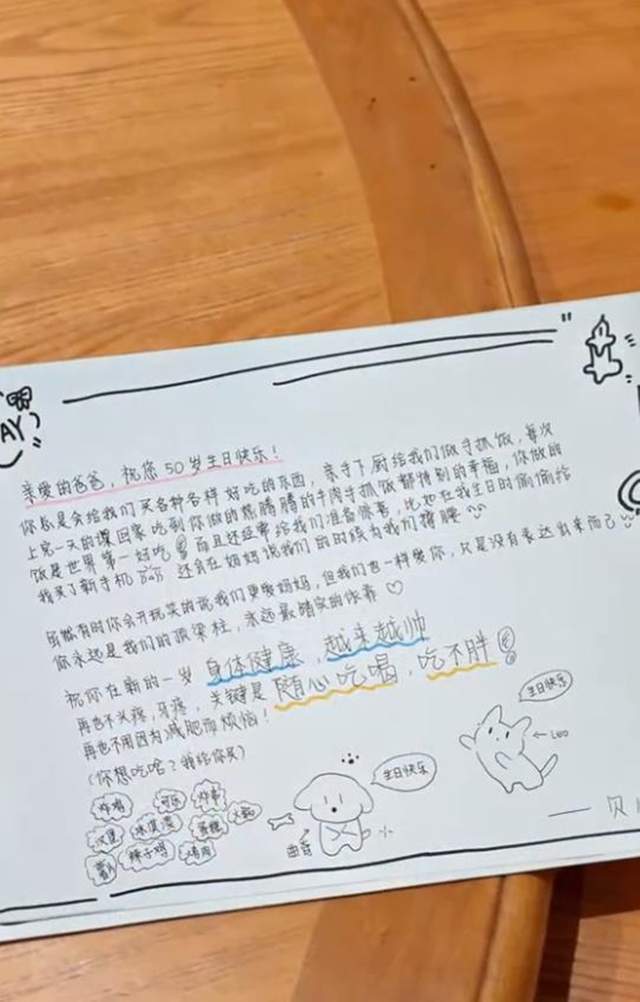 AY
亲爱的爸爸,祝您50岁生日快乐!
你总是会给我们买各种各样好吃的东西,亲手下厨给我们做手抓饭,每次
上完一天的课回家吃到你做的热腾腾的牛肉手抓饭都特别的幸福,你做的
饭是世界第一好吃 而且还经常给我们准备惊喜,比如在我生日时偷偷给
我买了新手机 还会在妈妈说我们的时候为我们撑腰
虽然有时你会开玩笑的说我们更爱妈妈,但我们也一样爱你,只是没有表达出来而已
你永远是我们的顶梁柱,永远最踏实的依靠
祝你在新的一岁 身体健康,越来越帅
再也不头疼,牙疼,关键是 随心吃喝,吃不胖
再也不用因为减肥而烦恼!
(你想吃啥?我给你买)
炸鸡 可乐 炸串
汉堡 冰淇淋 蛋糕 火锅
辣子鸡 烤肉
生日快乐
生日快乐
Leo
贝